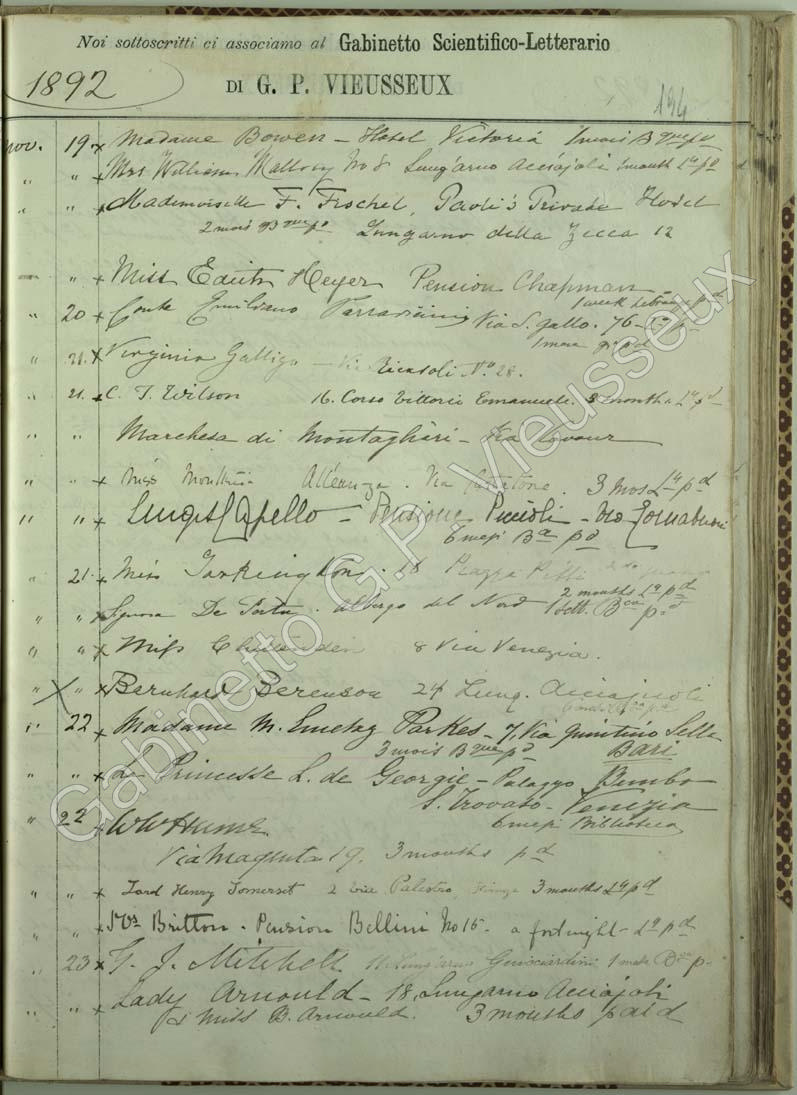 Noi sottoscritti ci associamo al Gabinetto Scientifico-Letterario
1892 DI G. P. VIEUSSEUX
194
nov. 19 x Madame Bowen - Hotel Victoria 1 mois B que p
" " x Mrs William Mallory No 8 Lung'arno Acciajoli 1 month La pd
" " x Mademoiselle F. Froehel, Paoli's Private Hotel
2 mois B que pd Lungarno della Zecca 12
" x Miss Edith Heyer Pension Chapman
1 week pd
" 20 x Conte Emiliano Via S. Gallo. 76 - La p
1 mese pd
" 21. x Virginia Galligo - Via Ricasoli No 28.
" 21. x C. T. Wilson 16. Corso Vittorio Emanuele. 3 months La pd
" " Marchesa di - Via Cavour
" " x Miss Alleanza. Via 3 mos La pd
" " " Luigi Capello - Pensione Piccioli - Via Tornabuoni
6 mesi Ba pd
" 21. x Miss Tarkington. 18 Piazza Pitti
2 months La pd
" " x Signora De - albergo del Nord 1 sett. Bca pd
" " x Miss Chittenden 8 Via Venezia.
" " x Bernhard Berenson 24 Lung. Acciajuoli
" 22 x Madame M. Parkes - 7, Via Quintino Sella
3 mois B que pd Bari
" " x La Princesse L. de Georgie - Palazzo Bembo
S. Trovaso - Venezia
" 22 x W W Hume 6 mesi Biblioteca
Via Magenta 19. 3 months pd
" " x Lord Henry Somerset 2 via Palestro, Firenze 3 months La pd
" " x Mrs Britton. Pension Bellini No 15 - a fortnight - La pd
" 23 x T. J. Mitchell 11 Lung'arno Guicciardini 1 mese B p
" " x Lady Arnould - 18, Lungarno Acciajoli
& Miss B. Arnould. 3 months paid
Gabinetto G.P. Vieusseux